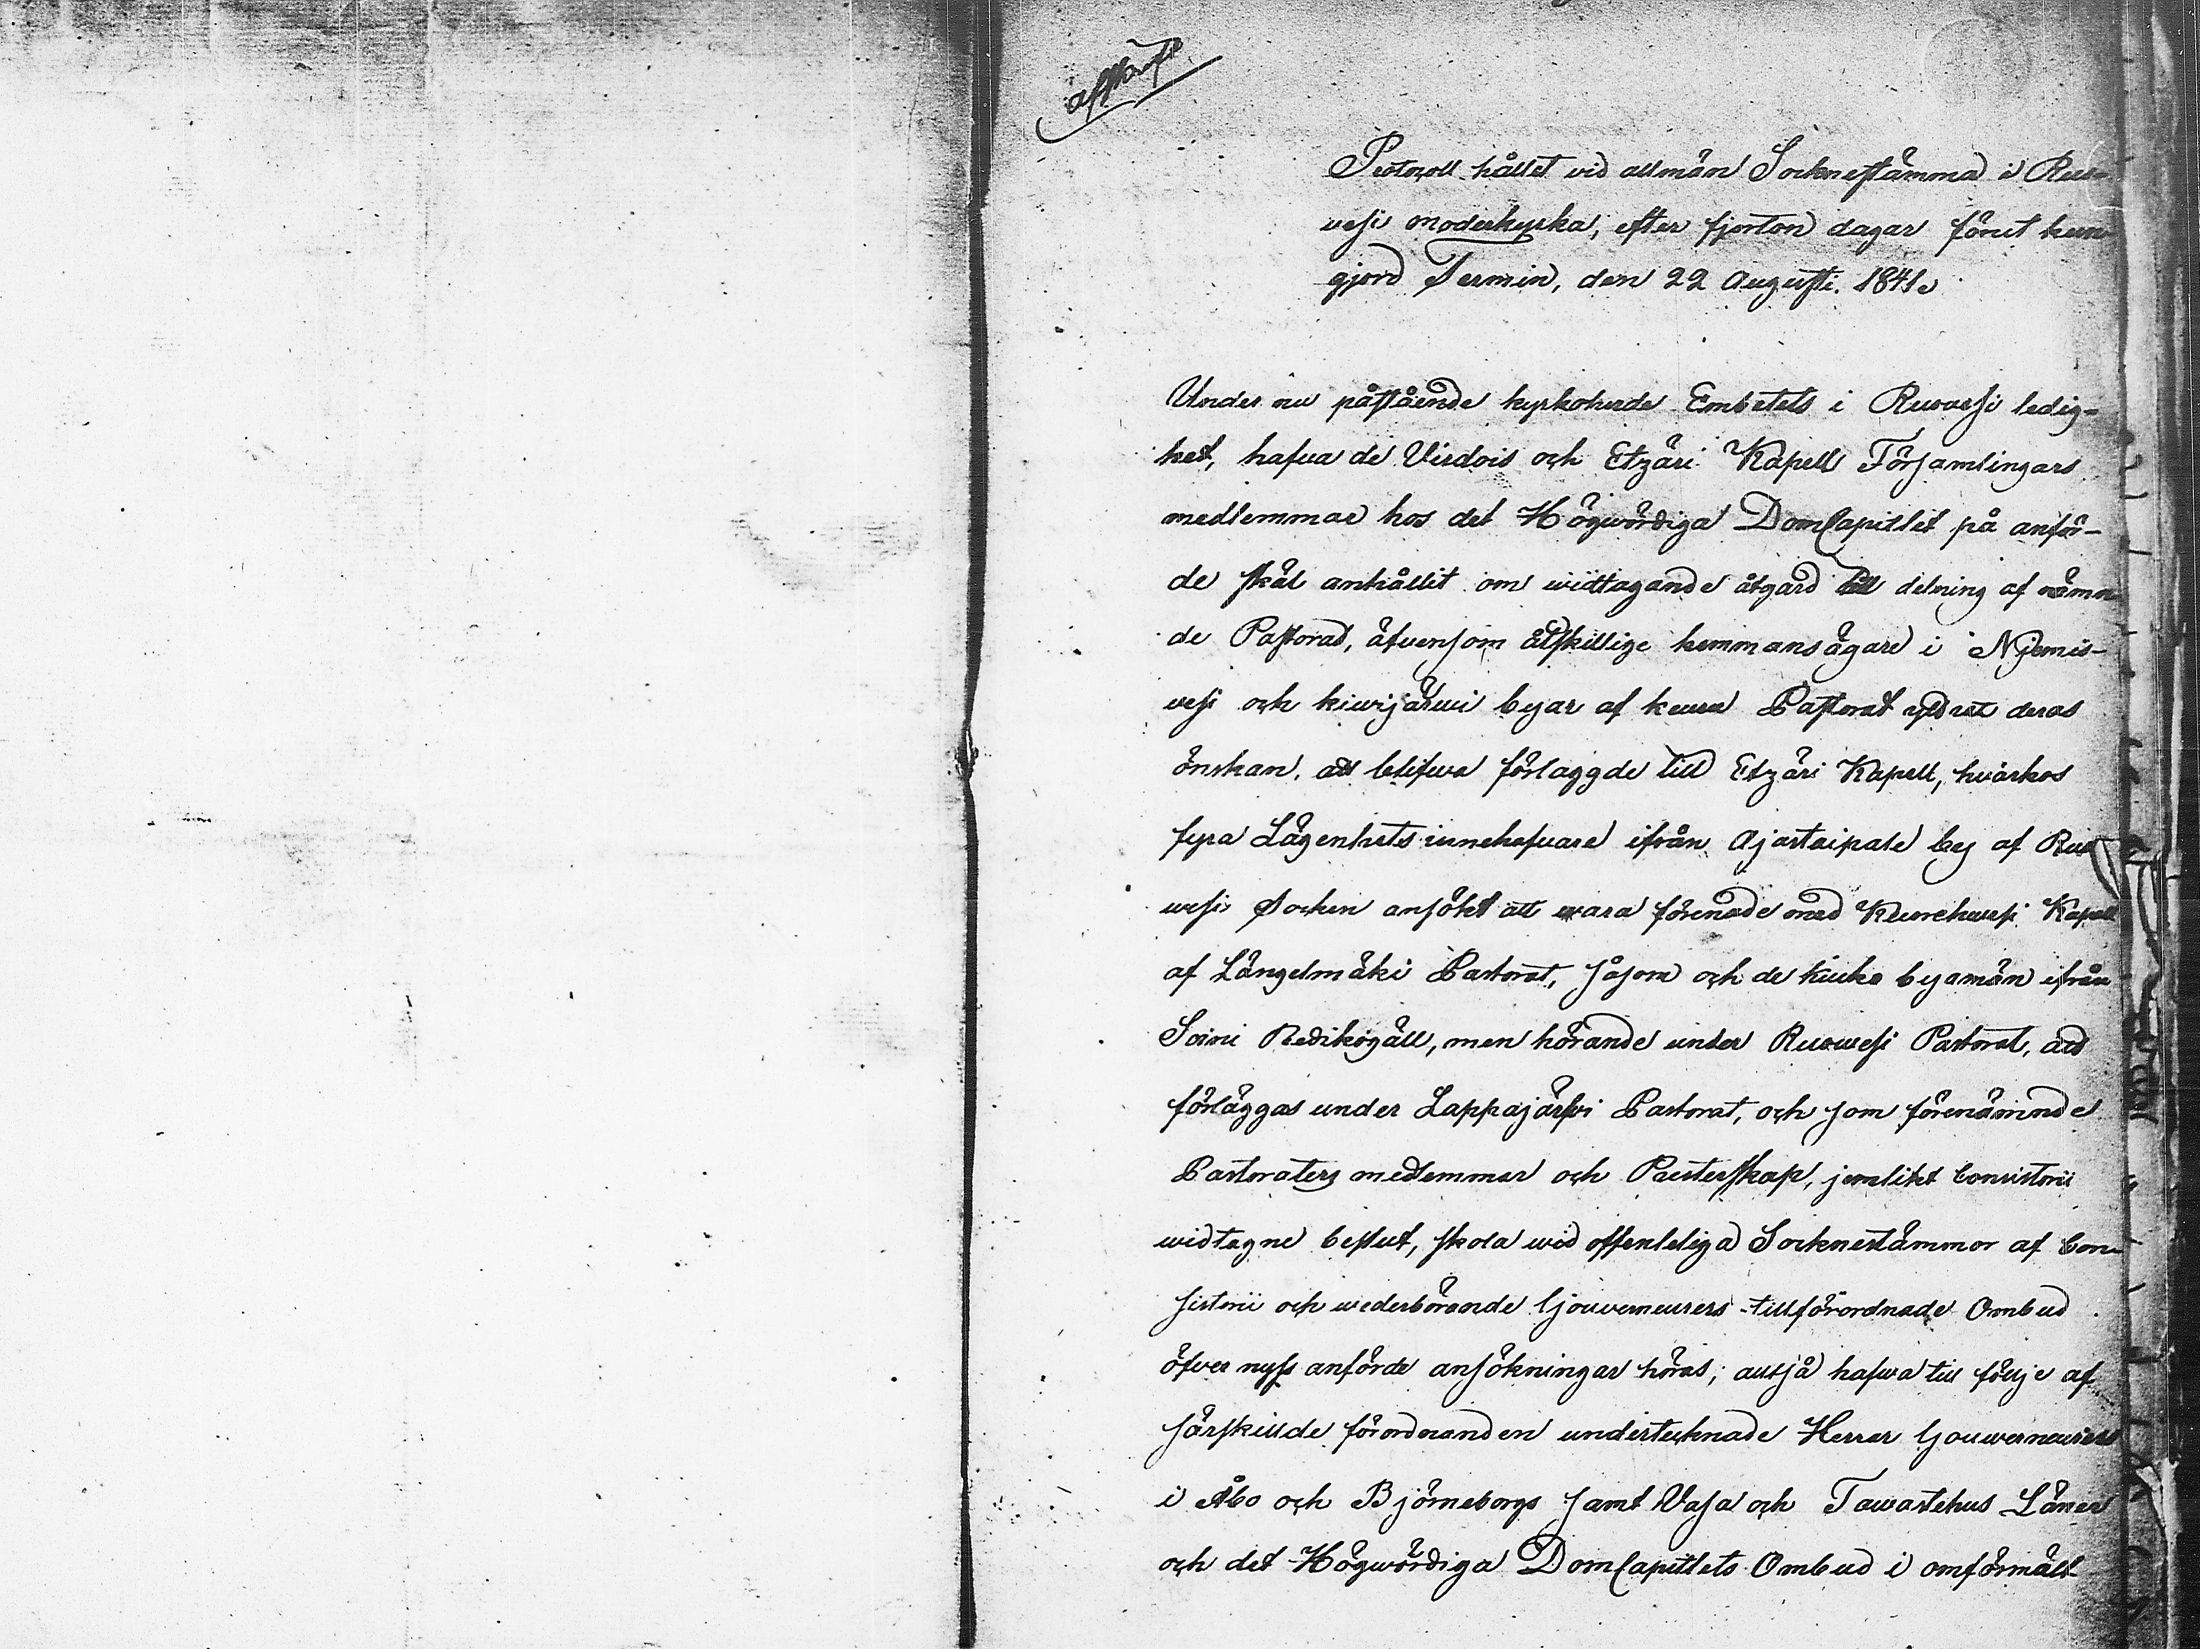 afskrift
Protocoll hållet vid allmän Socknestämma i Ruo-
vesi moderkyrka, efter fjorton dagar förut kun-
gjord Termin, den 22 Augusti. 1841.
Under nu påstående kyrkoherde Embetets i Ruovesi ledig-
het, hafva de Virdois och Etzäri Kapell Församlingars
medlemmar hos det Högwördiga DomCapitlet på anför-
de skäl anhållit om widtagande åtgärd till delning af nämn
de Pastorat, äfvensom åtskillige hemmansägare i Niemis-
vesi och kiwijärwi byar af keuru Pastorat yttrat deras
önskan, att blifwa förlaggde till Etzäri Kapell, hvarhos
fyra Lägenhets innehafvare ifrån Ajostaipale by af Ruo
wesi Socken ansökt att wara förenade med Keurehwesi Kapell
af Längelmäki Pastorat, såsom och de kuka byamän ifrån
Soini Predikogäll, men hörande under Ruowesi Pastorat, att
förläggas under Lappajärfvi Pastorat, och som förenämnde
Pastoraters medlemmar och Presterskap, jemlikt Consistorii
widtagne beslut, skola wid offenteliga Socknestämmor af Con-
sistorii och wederbörande Gouverneurers tillförordnade Ombud
öfver nyss anförde ansökningar höras; altså hafwa till följe af
särskillde förordnanden undertecknade Herrar Gouverneurers
i Åbo och Björneborgs samt Vasa och Tawastehus Läner
och det Högwördiga DomCapitlets Ombud i omförmält